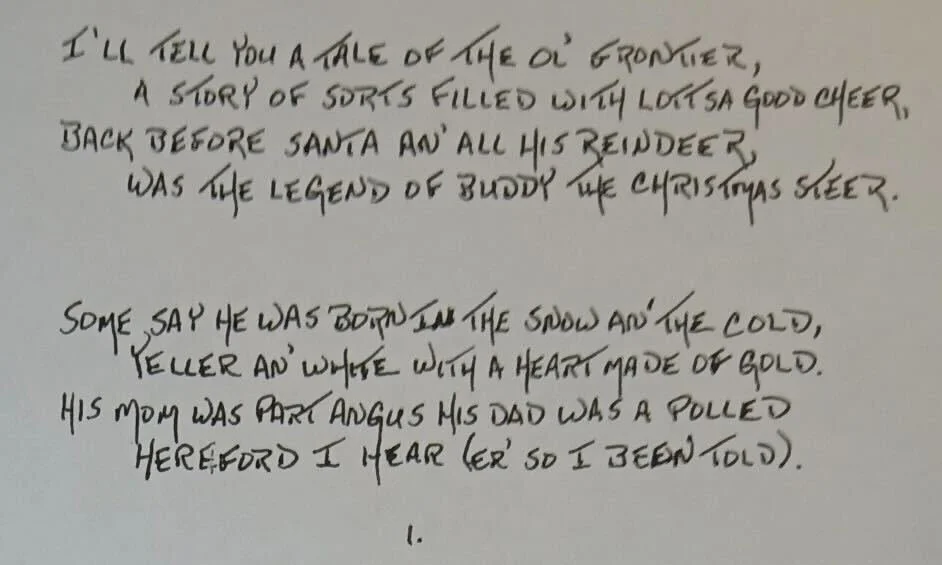 I'LL TELL YOU A TALE OF THE OL' FRONTIER,
A STORY OF SORTS FILLED WITH LOTTSA GOOD CHEER,
BACK BEFORE SANTA AN' ALL HIS REINDEER,
WAS THE LEGEND OF BUDDY THE CHRISTMAS STEER.
SOME SAY HE WAS BORN IN THE SNOW AN' THE COLD,
YELLER AN' WHITE WITH A HEART MADE OF GOLD.
HIS MOM WAS PART ANGUS HIS DAD WAS A POLLED
HEREFORD I HEAR (ER' SO I BEEN TOLD).
1.